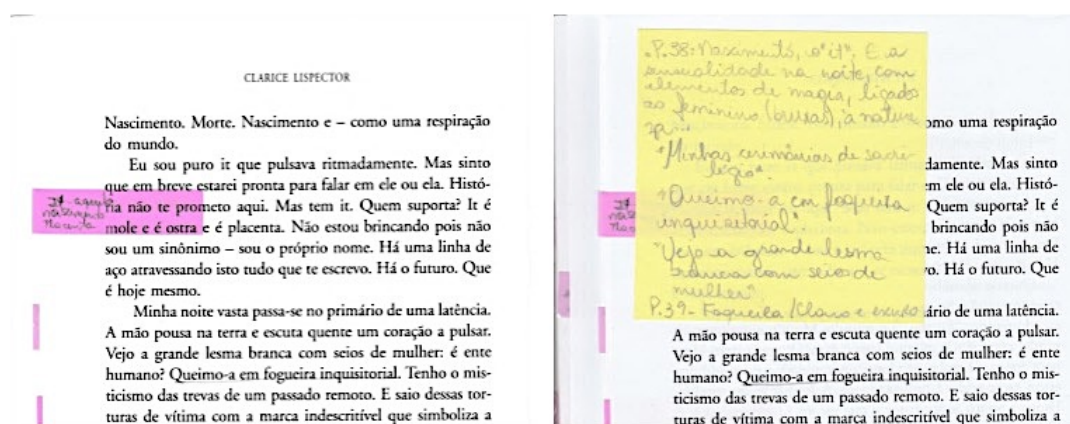 CLARICE LISPECTOR
Nascimento. Morte. Nascimento e – como uma respiração
do mundo.
Eu sou puro it que pulsava ritmadamente. Mas sinto
que em breve estarei pronta para falar em ele ou ela. Histó-
ria não te prometo aqui. Mas tem it. Quem suporta? It é
mole e é ostra e é placenta. Não estou brincando pois não
sou um sinônimo – sou o próprio nome. Há uma linha de
aço atravessando isto tudo que te escrevo. Há o futuro. Que
é hoje mesmo.
Minha noite vasta passa-se no primário de uma latência.
A mão pousa na terra e escuta quente um coração a pulsar.
Vejo a grande lesma branca com seios de mulher: é ente
humano? Queimo-a em fogueira inquisitorial. Tenho o mis-
ticismo das trevas de um passado remoto. E saio dessas tor-
turas de vítima com a marca indescritível que simboliza a
P.38: Nascimento, o "it". E a
sensualidade na noite, com
elementos de magia, ligado
ao feminino (bruxas), à nature
za...
"Minhas cerimônias de sacri-
légio".
"Queimo-a em fogueira
inquisitorial".
"Vejo a grande lesma
branca com seios de
mulher"
P.39- Fogueira / Claro e escuro
omo uma respiração
damente. Mas sinto
em ele ou ela. Histó-
Quem suporta? It é
brincando pois não
ne. Há uma linha de
o. Há o futuro. Que
ário de uma latência.
A mão pousa na terra e escuta quente um coração a pulsar.
Vejo a grande lesma branca com seios de mulher: é ente
humano? Queimo-a em fogueira inquisitorial. Tenho o mis-
ticismo das trevas de um passado remoto. E saio dessas tor-
turas de vítima com a marca indescritível que simboliza a